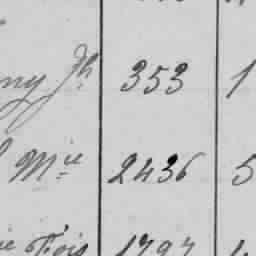 ny Jh 353 1
Mie 2436 5
ie Fois 1797